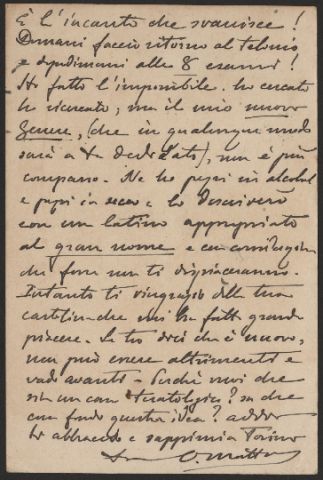 È l'incanto che svanisce!
Domani faccio ritorno al telonio
e dipidimani alle 8 esami!
Ho fatto l'impossibile. ho cercato
ho ricercato, ma il mio nuovo
Genere, (che in qualunque modo
sarà a te dedicato), non è più
comparso. Ne ho presi in alcohol
e presi in secco e lo descriverò
con un latino appropriato
al gran nome e con
che forse non ti dispiaceranno.
Intanto ti ringrazio della tua
cartolina che mi ha fatto grande
piacere. Se tu dici che è nuovo,
non può essere altrimenti e
vado avanti. Perchè vuoi che
sia un caso teratologico? su che
cosa fondo questa idea? addio
ti abbraccio e Torino